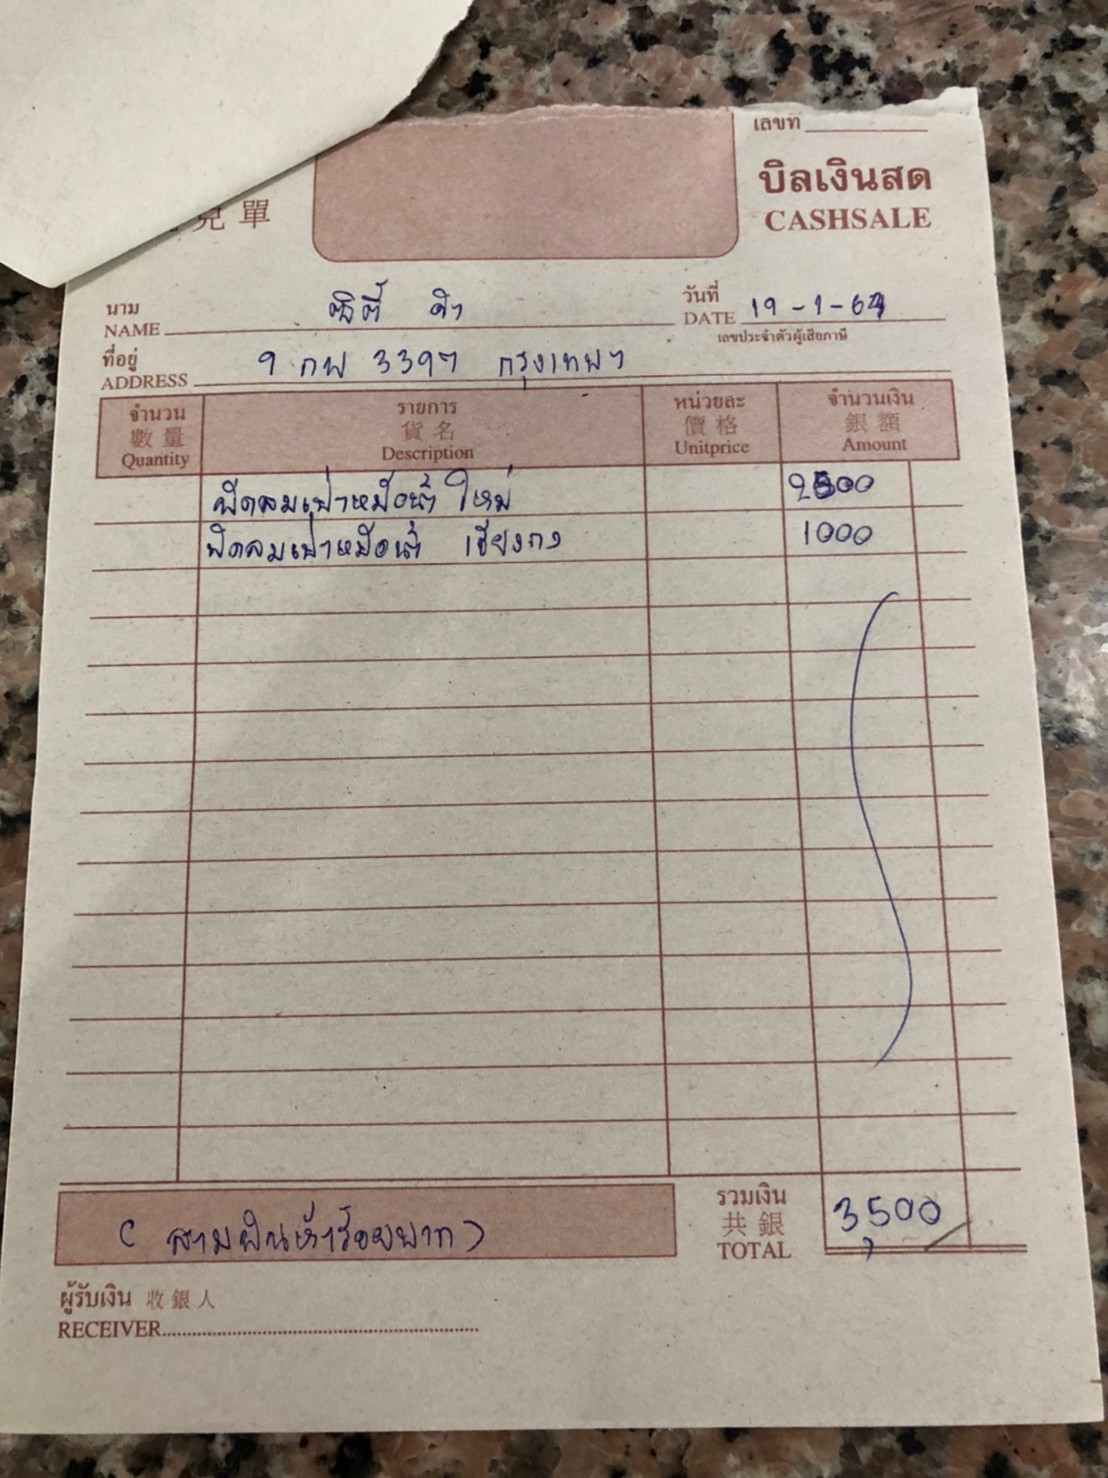 兌單
เลขที่
บิลเงินสด
CASHSALE
นาม
NAME
วันที่
DATE 19-1-64
เลขประจำตัวผู้เสียภาษี
ที่อยู่
ADDRESS 9 กพ 3397 กรุงเทพฯ
จำนวน รายการ หน่วยละ จำนวนเงิน
數量 貨名 價格 銀額
Quantity Description Unitprice Amount
พัดลมเป่าหม้อน้ำ ใหม่ 2500
พัดลมเป่าหม้อน้ำ เชียงกง 1000
(สามพันห้าร้อยบาท)
รวมเงิน
共銀
TOTAL 3,500
ผู้รับเงิน 收銀人
RECEIVER